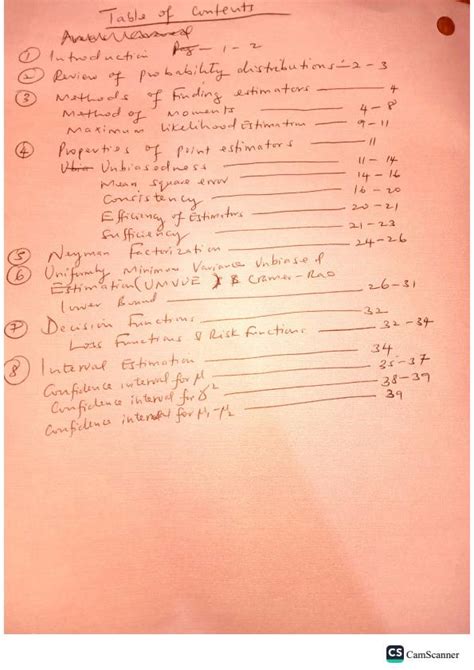 Table of Contents
① Introduction Pg - 1 - 2
② Review of probability distributions - 2 - 3
③ Methods of Finding estimators 4
Method of Moments 4 - 8
Maximum Likelihood Estimation 9 - 11
④ Properties of Point estimators 11
Unbiasedness 11 - 14
Mean square error 14 - 16
Consistency 16 - 20
Efficiency of Estimators 20 - 21
Sufficiency 21 - 23
⑤ Neyman Factorization 24 - 26
⑥ Uniformly Minimum Variance Unbiased
Estimation (UMVUE) & Cramer-Rao
lower Bound 26 - 31
⑦ Decision Functions 32
Loss Functions & Risk Functions 32 - 34
⑧ Interval Estimation 34
Confidence interval for μ 35 - 37
Confidence interval for σ² 38 - 39
Confidence interval for μ₁-μ₂ 39
CS CamScanner